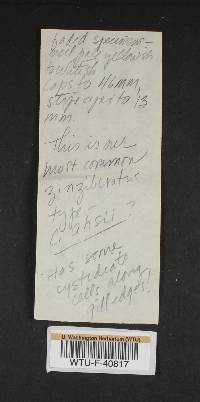 faded specimens —
very pale yellowish
caps to 46mm,
stipe apex to 13
mm.
This is our
most common
zinziberatus
type —
Has some
cystidiate
cells along
gill edges!
U. Washington Herbarium (WTU)
WTU-F-40817